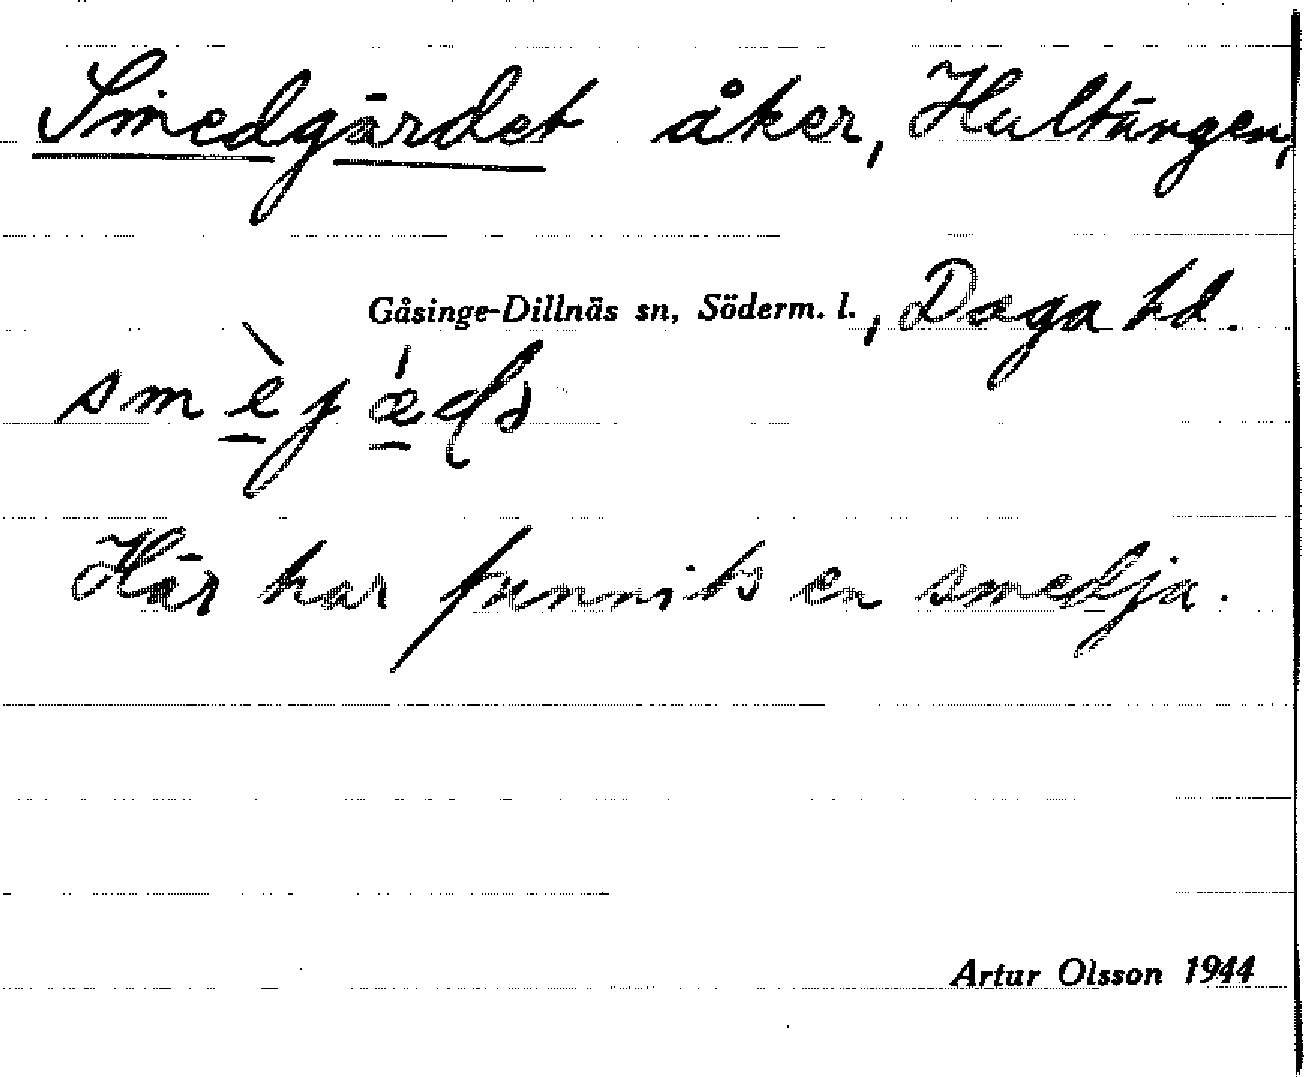 Smedgärdet åker, Hultängen,
Gåsinge-Dillnäs sn, Söderm. l., Daga hd.
Här har funnits en smedja.
Artur Olsson 1944